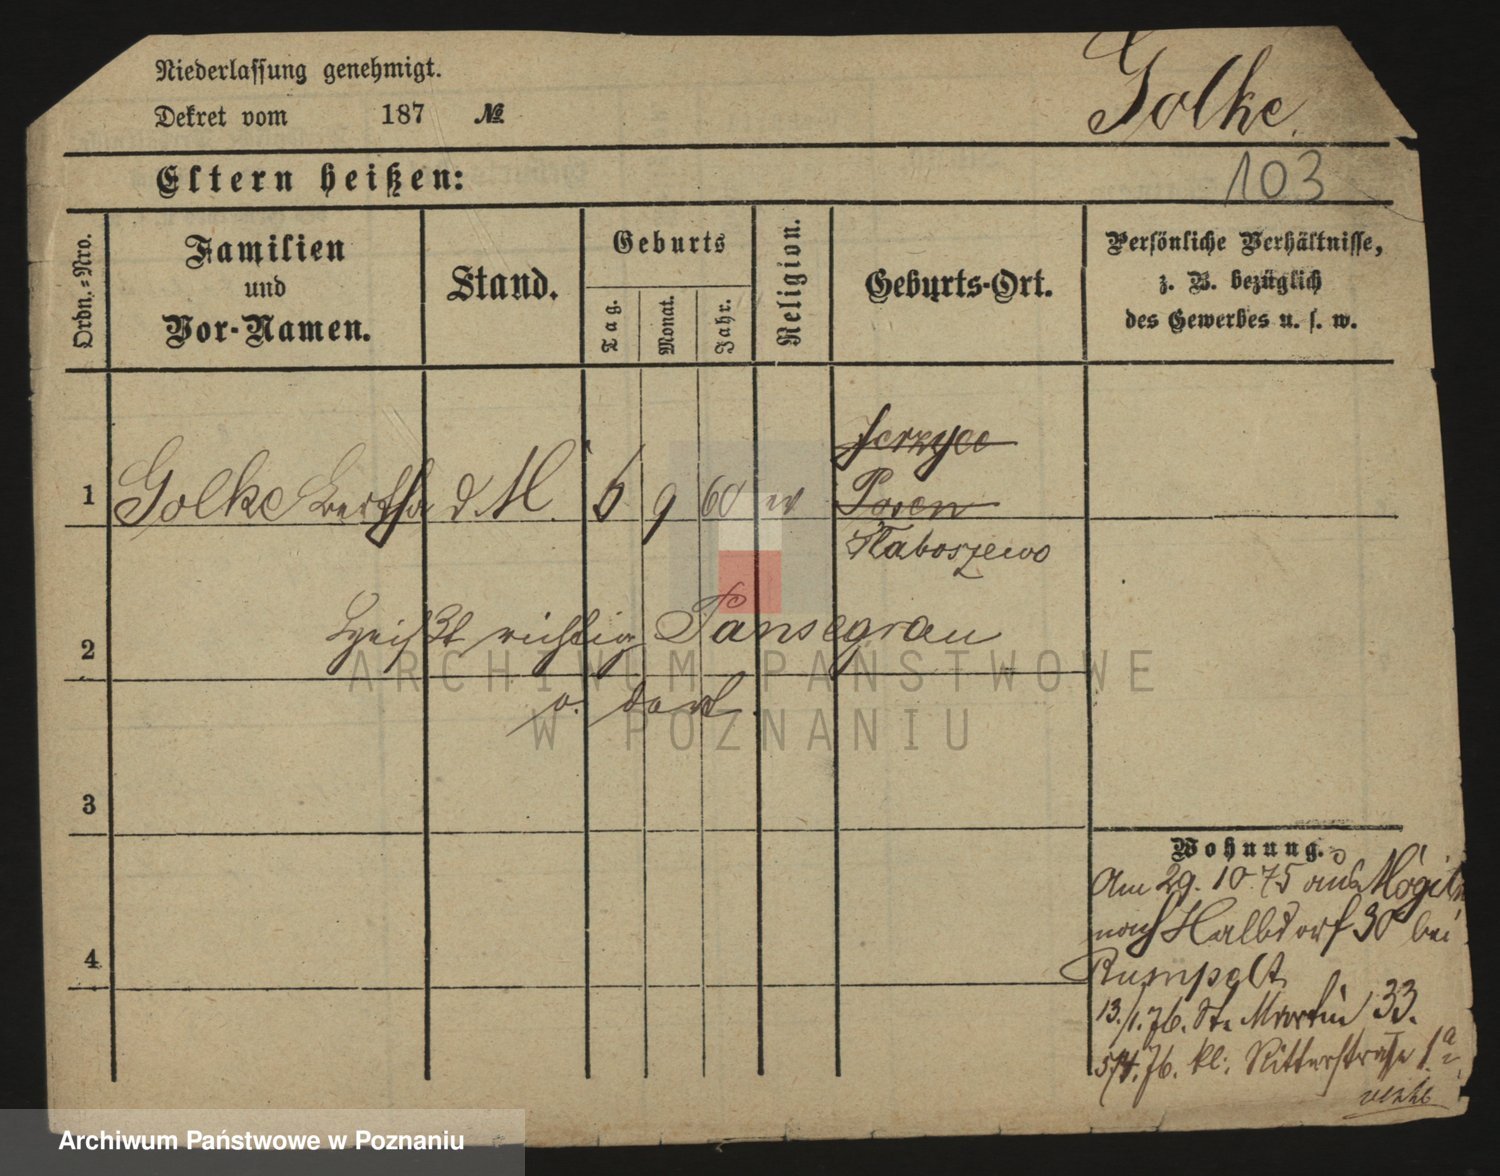 Niederlassung genehmigt.
Golke
Dekret vom 187 №
Eltern heißen:
103
Ordn.=Nro.
Familien
und
Vor-Namen.
Stand.
Geburts
Tag.
Monat.
Jahr.
Religion.
Geburts-Ort.
Persönliche Verhältnisse,
z. B. bezüglich
des Gewerbes u. s. w.
Jerzyce
1 Golke Bertha d. M. 6 9 60 ev Posen
Kaboszewo
2 heißt richtig Pansegrau
3
Wohnung.
Am 29. 10 75 aus
nach Halbdorf 30 bei
Rumpelt
4
13./1.76. St. Martin 33.
5/4.76. kl. Ritterstraße 1a
ARCHIWUM PAŃSTWOWE
W POZNANIU
Archiwum Państwowe w Poznaniu